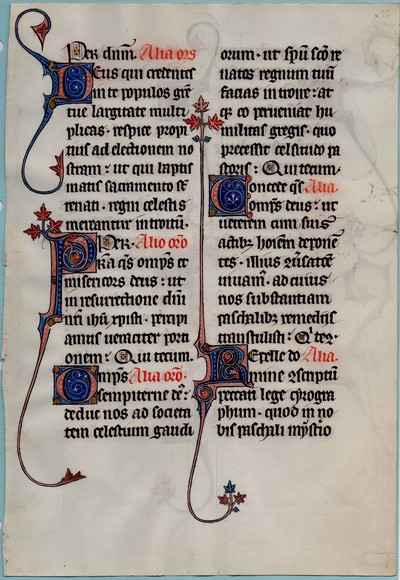 Per dnm̄. Alia ors
Deus qui credentes
in te populos grē
tue largitate multi
plicas · respice propi
tius ad electionem no
stram : ut qui baptis
matis sacramento sūt
renati · regni celestis
mereantur introitū.
Per · Alia oro
Pra q̄s omp̄s et
misericors deus : ut
in resurrectione dn̄i
nr̄i ihū xpisti · percipi
amus veraciter porti
onem : Qui tecum.
Omp̄s Alia oro.
sempiterne de :
deduc nos ad societa
tem celestium gaudi
orum · ut sp̄u sc̄o re
natos regnum tuū
facias introire : at
q; eo perveniat hu
militas gregis · quo
precessit celsitudo pa
storis : Qui tecum.
Concede q̄s Alia.
omp̄s deus : ut
veterem cum suis
actib; hoīem depone
tes · illius ꝯv̄satōe
vivam⁹ · ad cuius
nos substantiam
paschalib; remedijs
transtulisti : Q' tec.
Repelle do Alia.
mine ꝯscriptū
peccati lege cyrogra
phum · quod in no
bis paschali mysterio